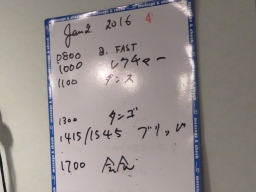 Jan 2 2016 4
0800 B. FAST
1000 レクチャー
1100 ダンス
1300 タンゴ
1415/1545 ブリッジ
1700 会食